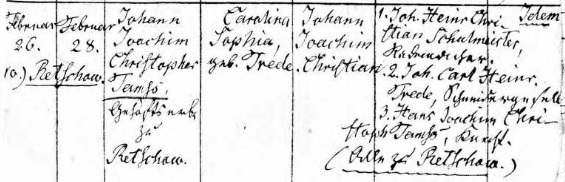 Februar Februar Johann Carolina Johann 1. Joh. Heinr. Chri- Idem
26. 28. Joachim Sophia, Joachim stian Schulmeister,
Christopher geb. Trede. Christian.
10.) Retschow. Tamß, 2. Joh. Carl Heinr.
Trede, Schneidergesell
zu 3. Hans Joachim Chri-
stoph Tamß, Knecht.
Retschow. (Alle zu Retschow.)